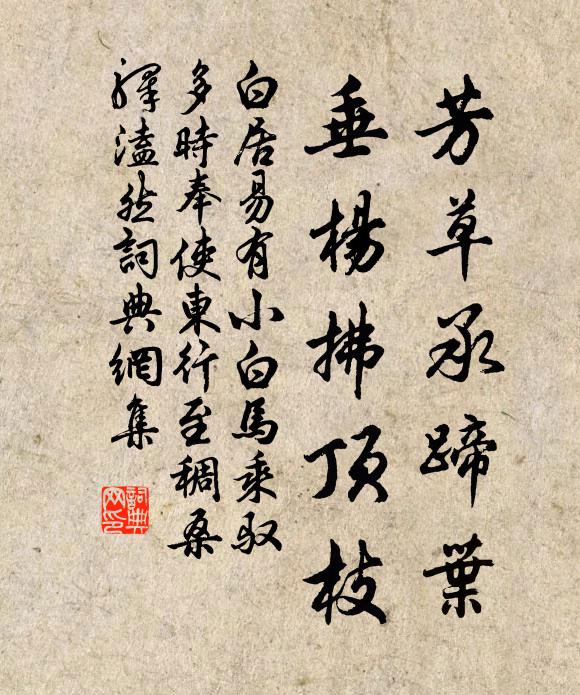 芳草承蹄葉
垂楊拂頂枝
白居易有小白馬乘馭
多時奉使東行至稠桑
驛溘然詞典網集
詞典
网印